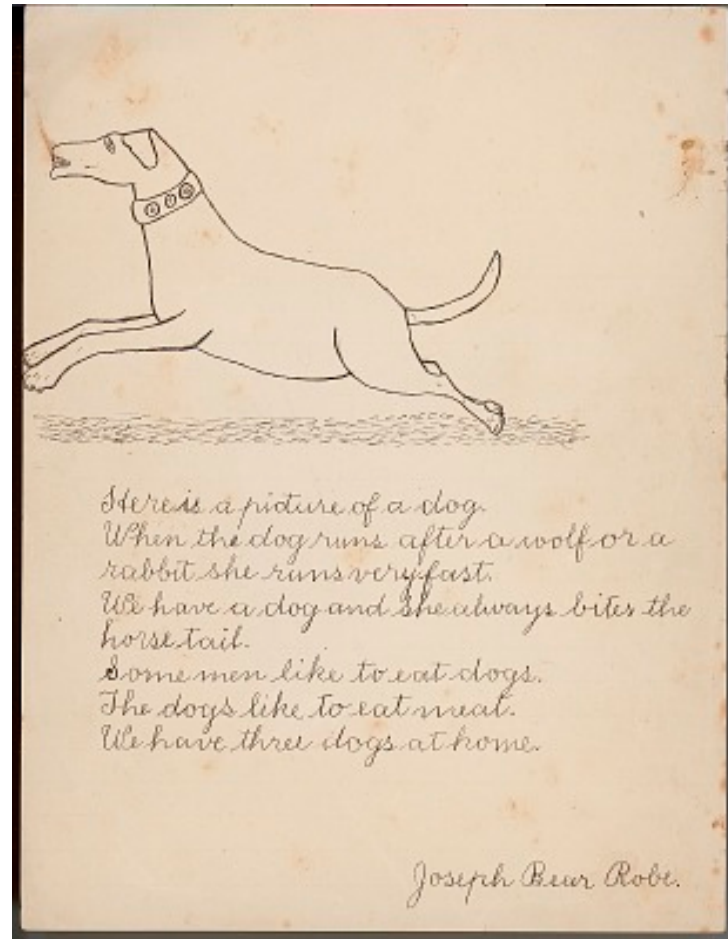 Here is a picture of a dog.
When the dog runs after a wolf or a
rabbit she runs very fast.
We have a dog and she always bites the
horse tail.
Some men like to eat dogs.
The dogs like to eat meat.
We have three dogs at home.
Joseph Bear Robe.